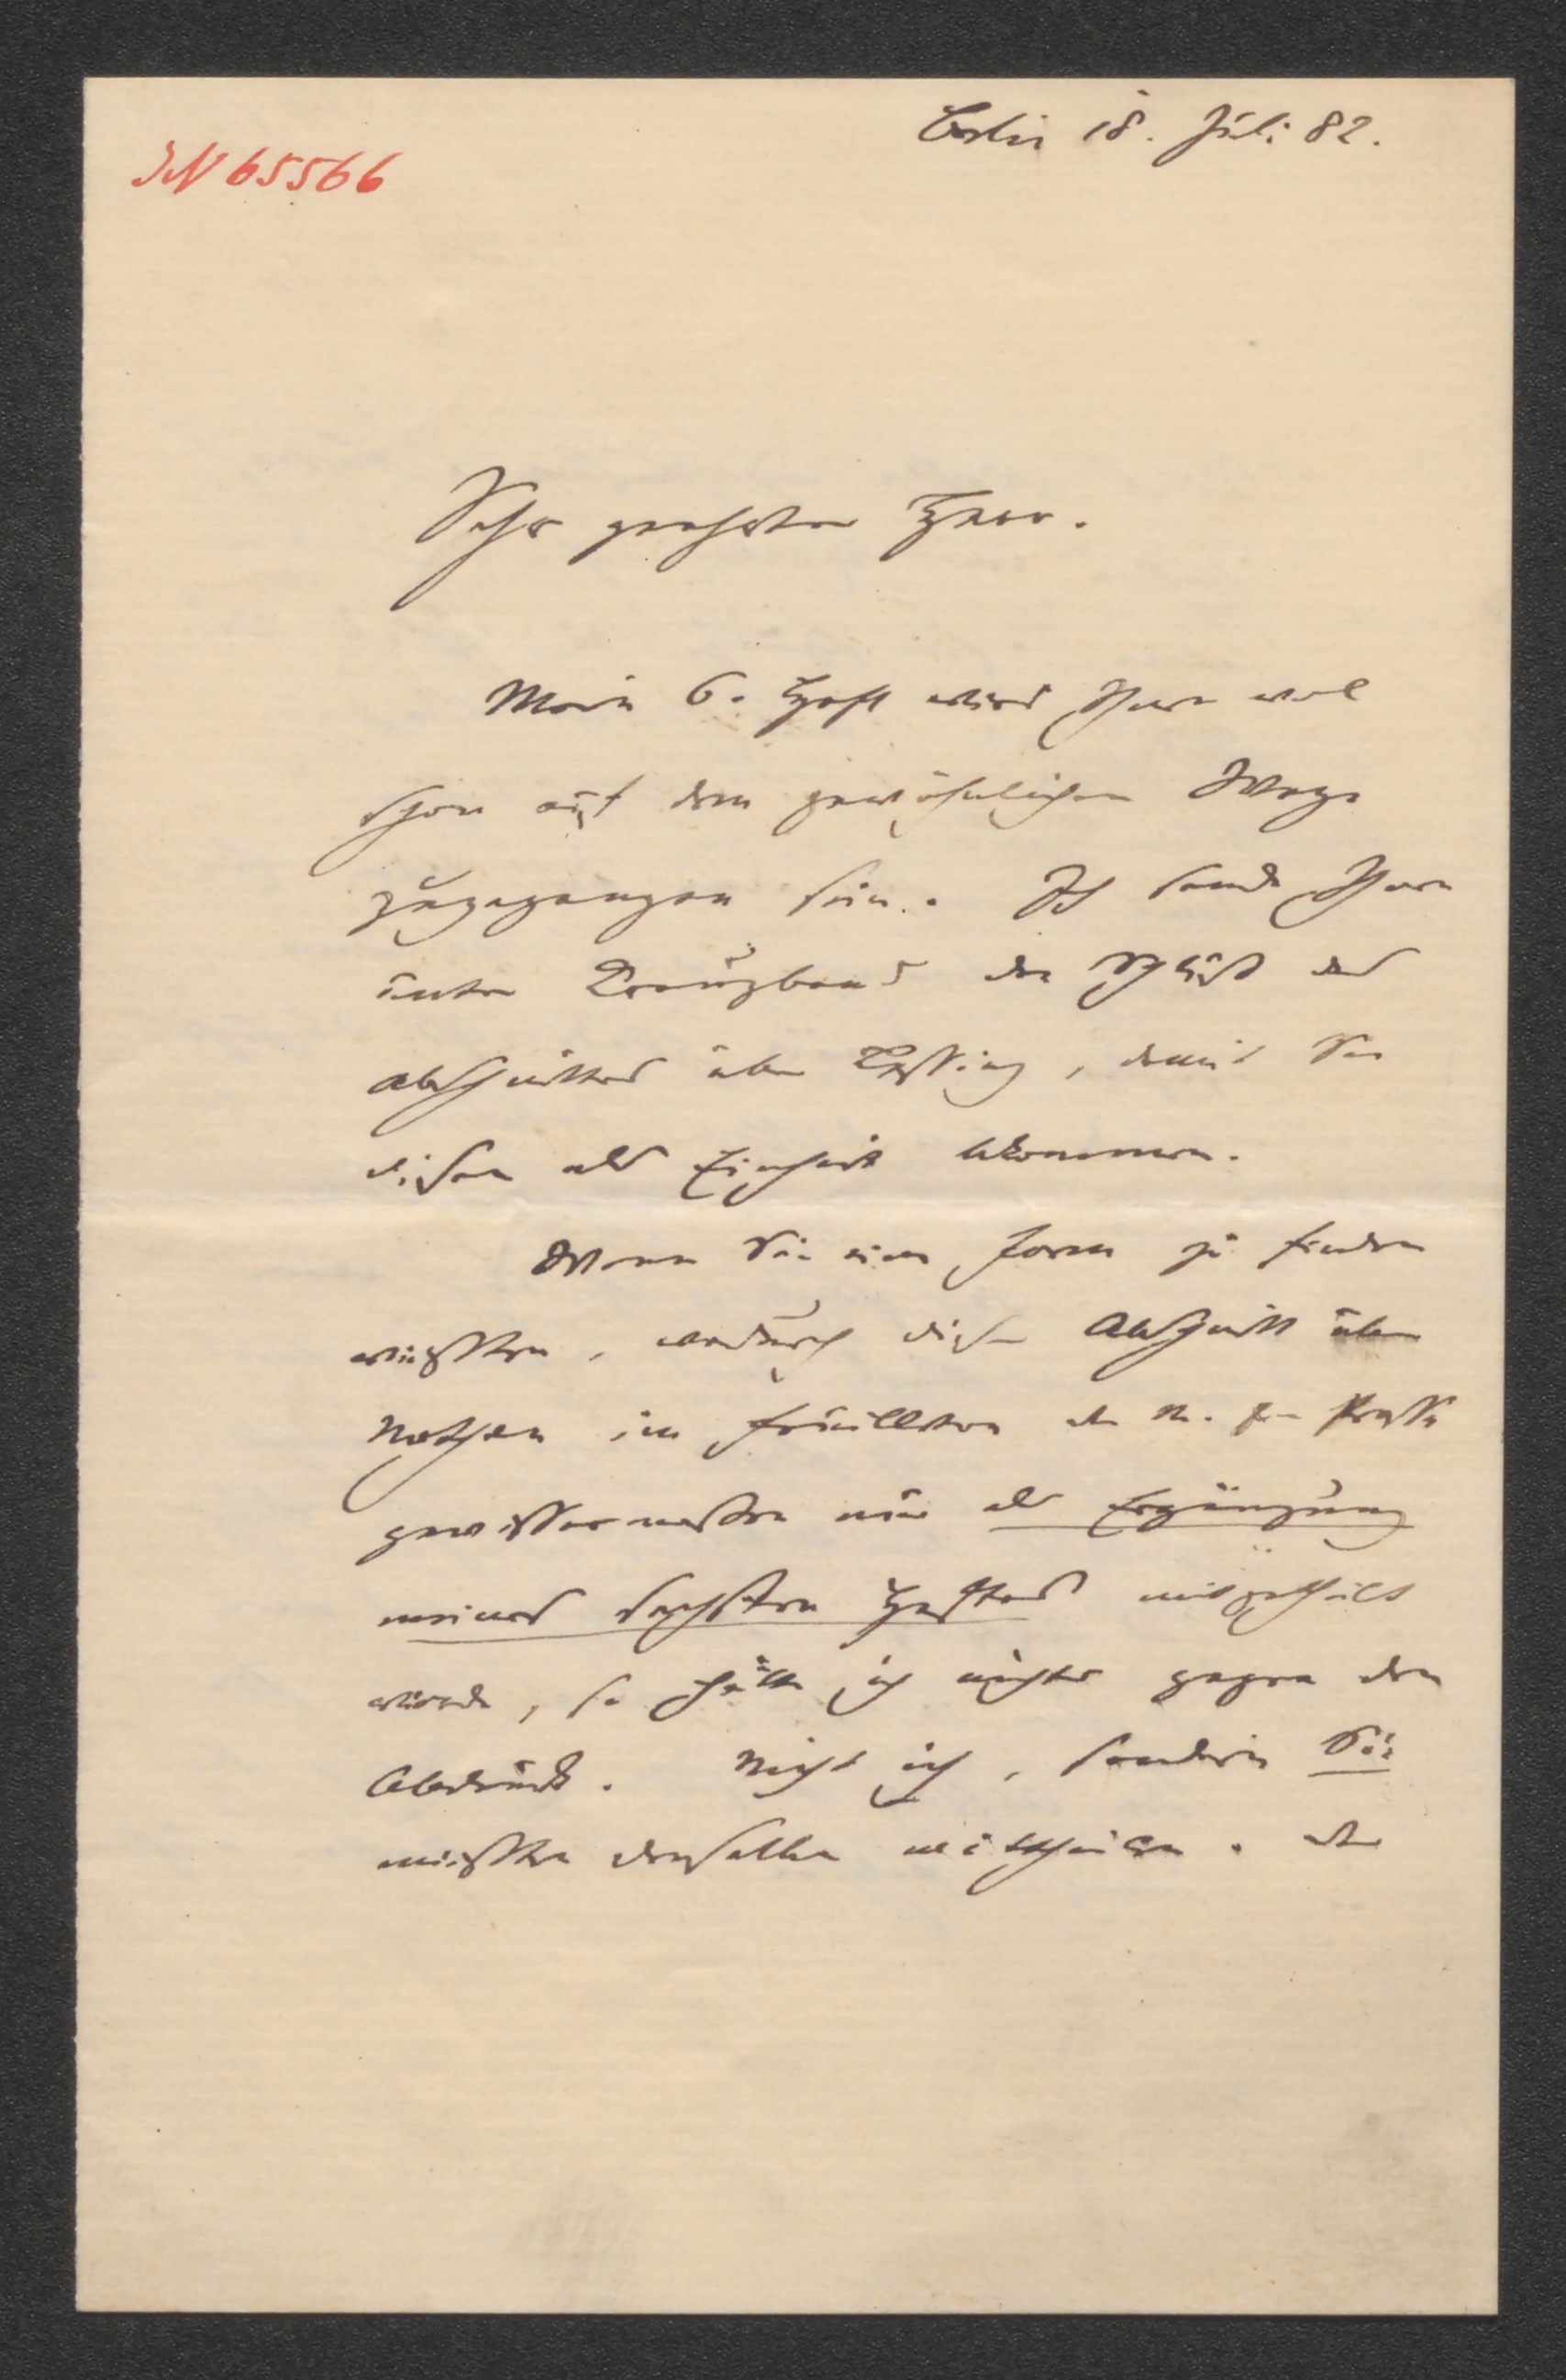 Berlin 18. Juli 82.
IN 65566
Sehr geehrter Herr.
Mein 6. Heft wird Ihnen wol
schon auf dem gewöhnlichen Wege
zugegangen sein. Ich sende Ihnen
unter Kreuzband den Schluß des
Abschnittes über Lessing, damit Sie
diesen als Einheit bekommen.
Wenn Sie eine Form zu finden
wüßten, wodurch dieser Abschnitt über
Nathan im Feuilleton der N. fr. Presse
gewissermaßen nur als Ergänzung
meines sechsten Heftes mitgetheilt
würde, so hätte ich nichts gegen den
Abdruck. Nicht ich, sondern Sie
müßten denselben mittheilen. der